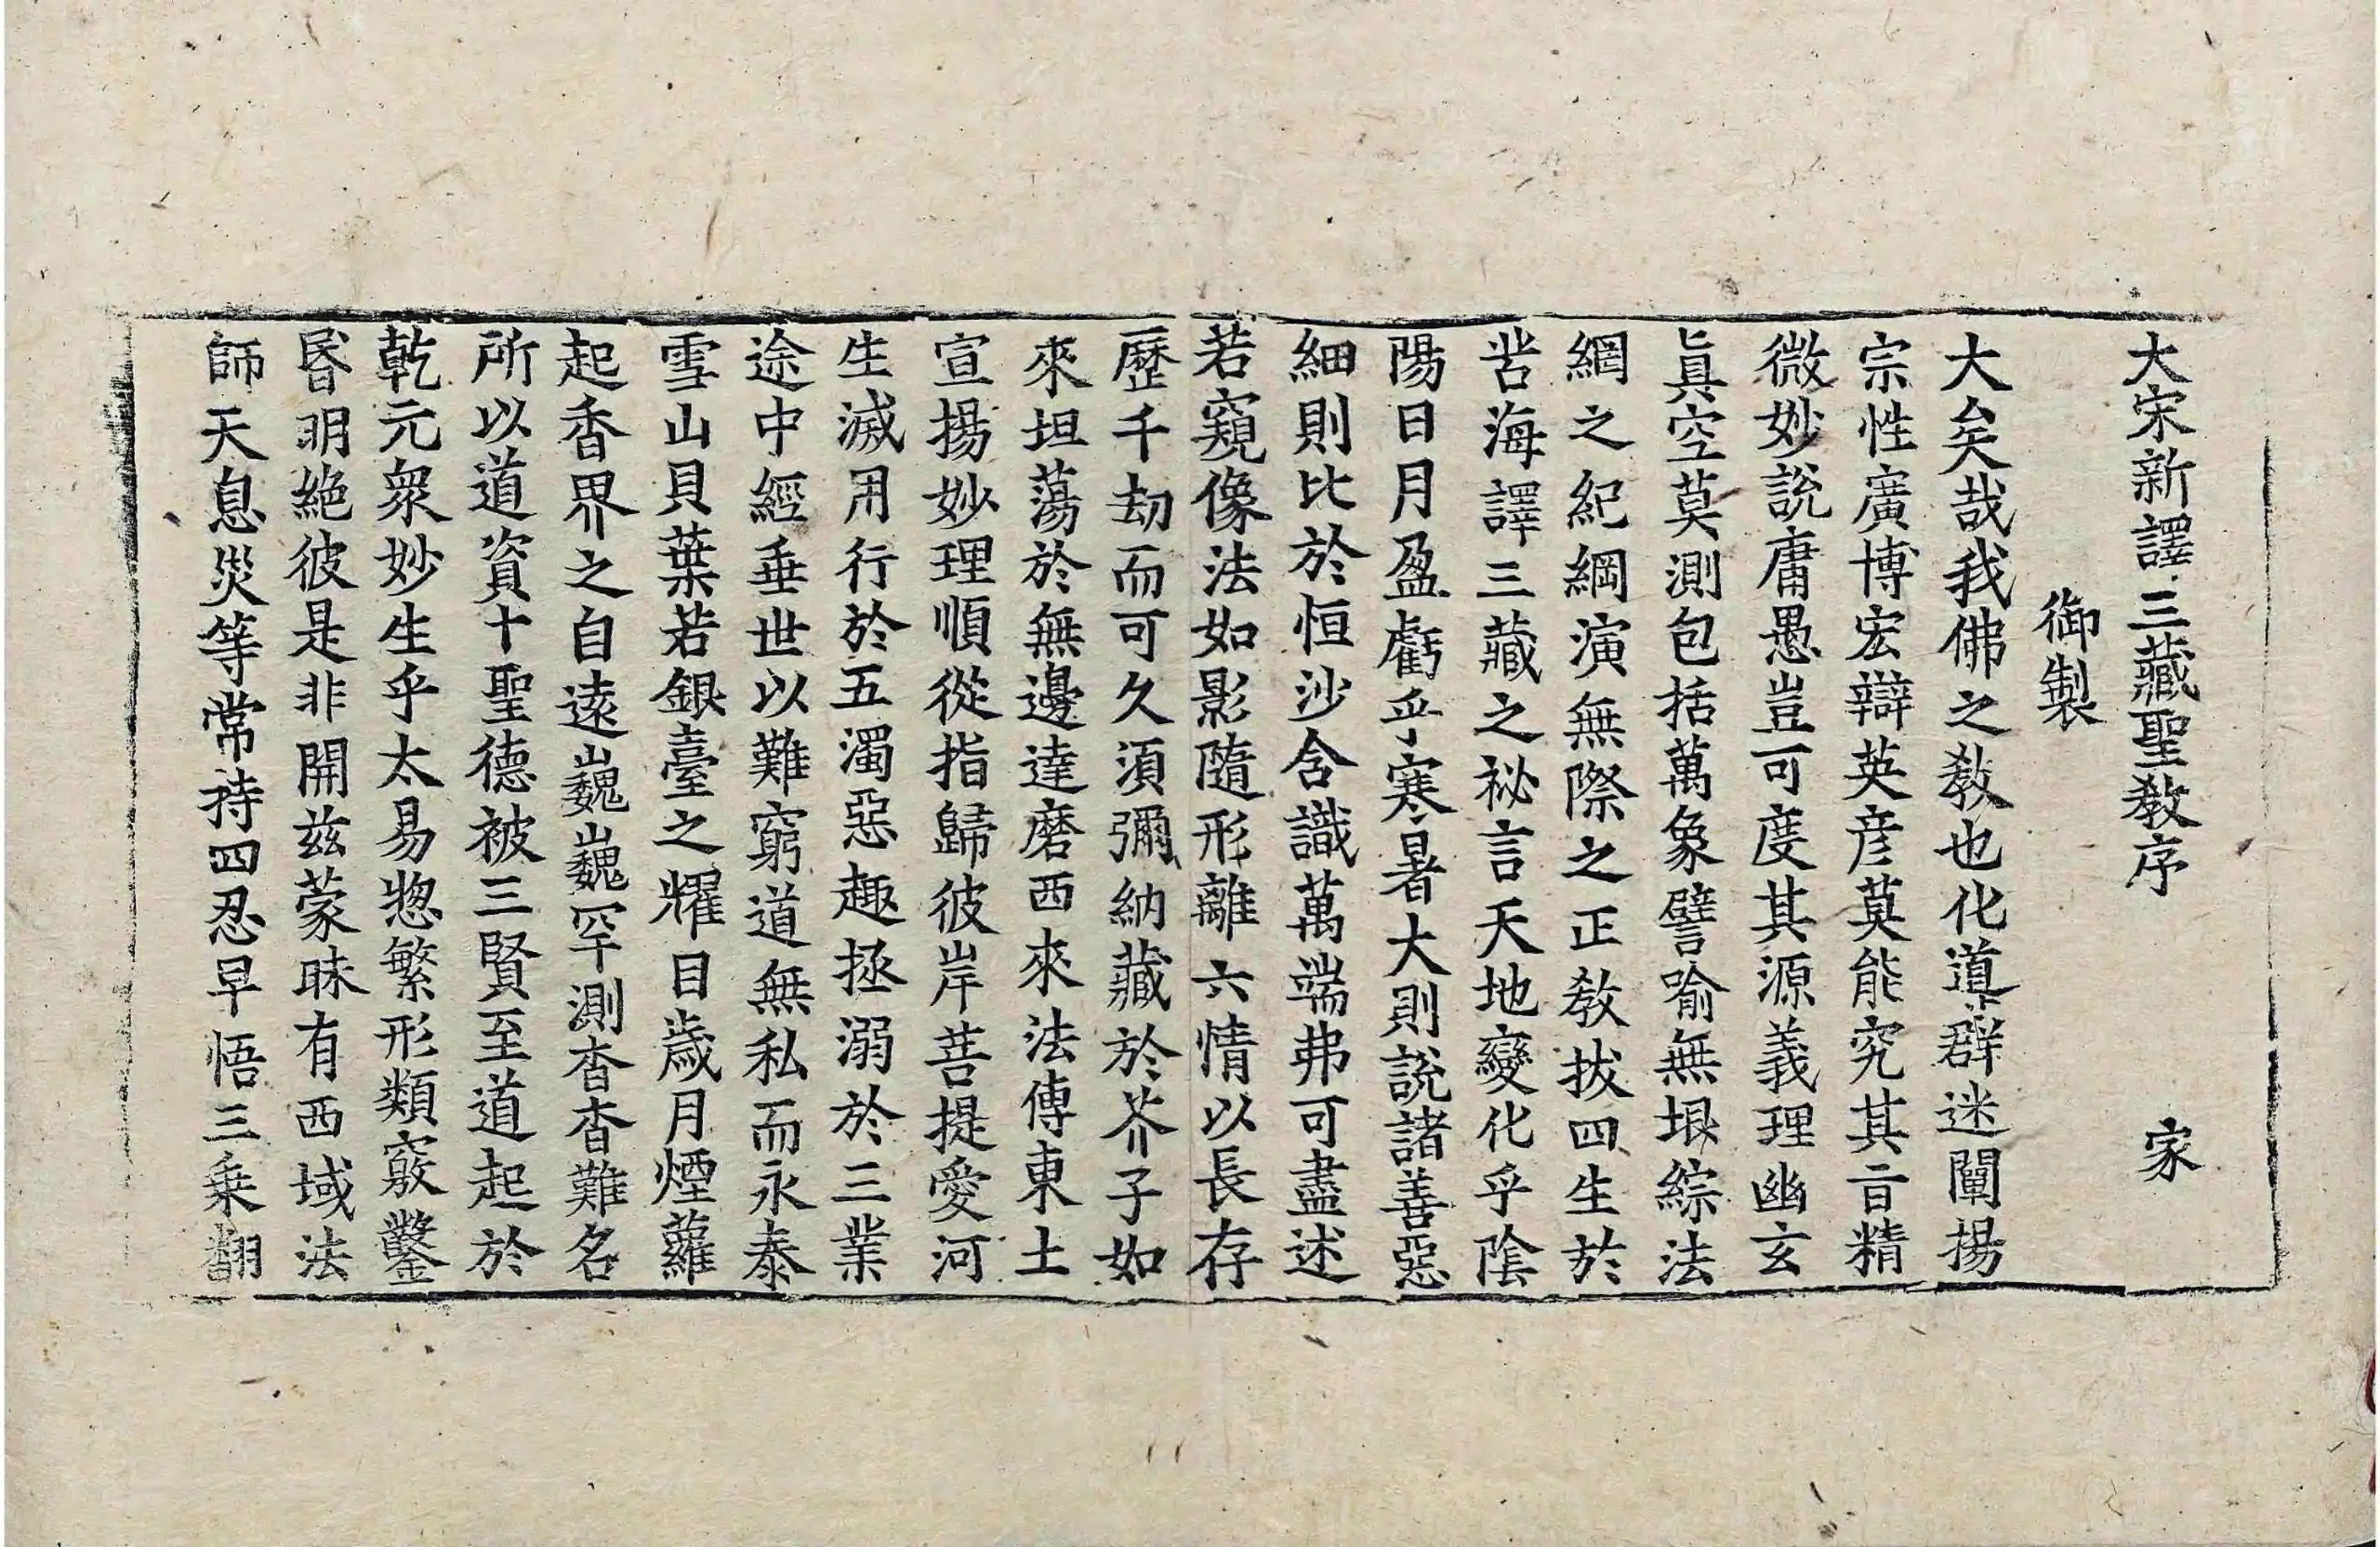 大宋新譯三藏聖教序 家
御製
大矣哉我佛之教也化導群迷闡揚
宗性廣博宏辯英彥莫能究其旨精
微妙說庸愚豈可度其源義理幽玄
眞空莫測包括萬象譬喻無垠綜法
網之紀綱演無際之正教拔四生於
苦海譯三藏之祕言天地變化乎陰
陽日月盈虧乎寒暑大則說諸善惡
細則比於恒沙含識萬端弗可盡述
若窺像法如影隨形離六情以長存
歷千劫而可久須彌納藏於芥子如
來坦蕩於無邊達磨西來法傳東土
宣揚妙理順從指歸彼岸菩提愛河
生滅用行於五濁惡趣拯溺於三業
途中經垂世以難窮道無私而永泰
雪山貝葉若銀臺之耀目歲月煙蘿
起香界之自遠巍巍罕測杳杳難名
所以道資十聖德被三賢至道起於
乾元衆妙生乎太易惣繁形類竅鑿
昬明絕彼是非開茲蒙昧有西域法
師天息災等常持四忍早悟三乘翻